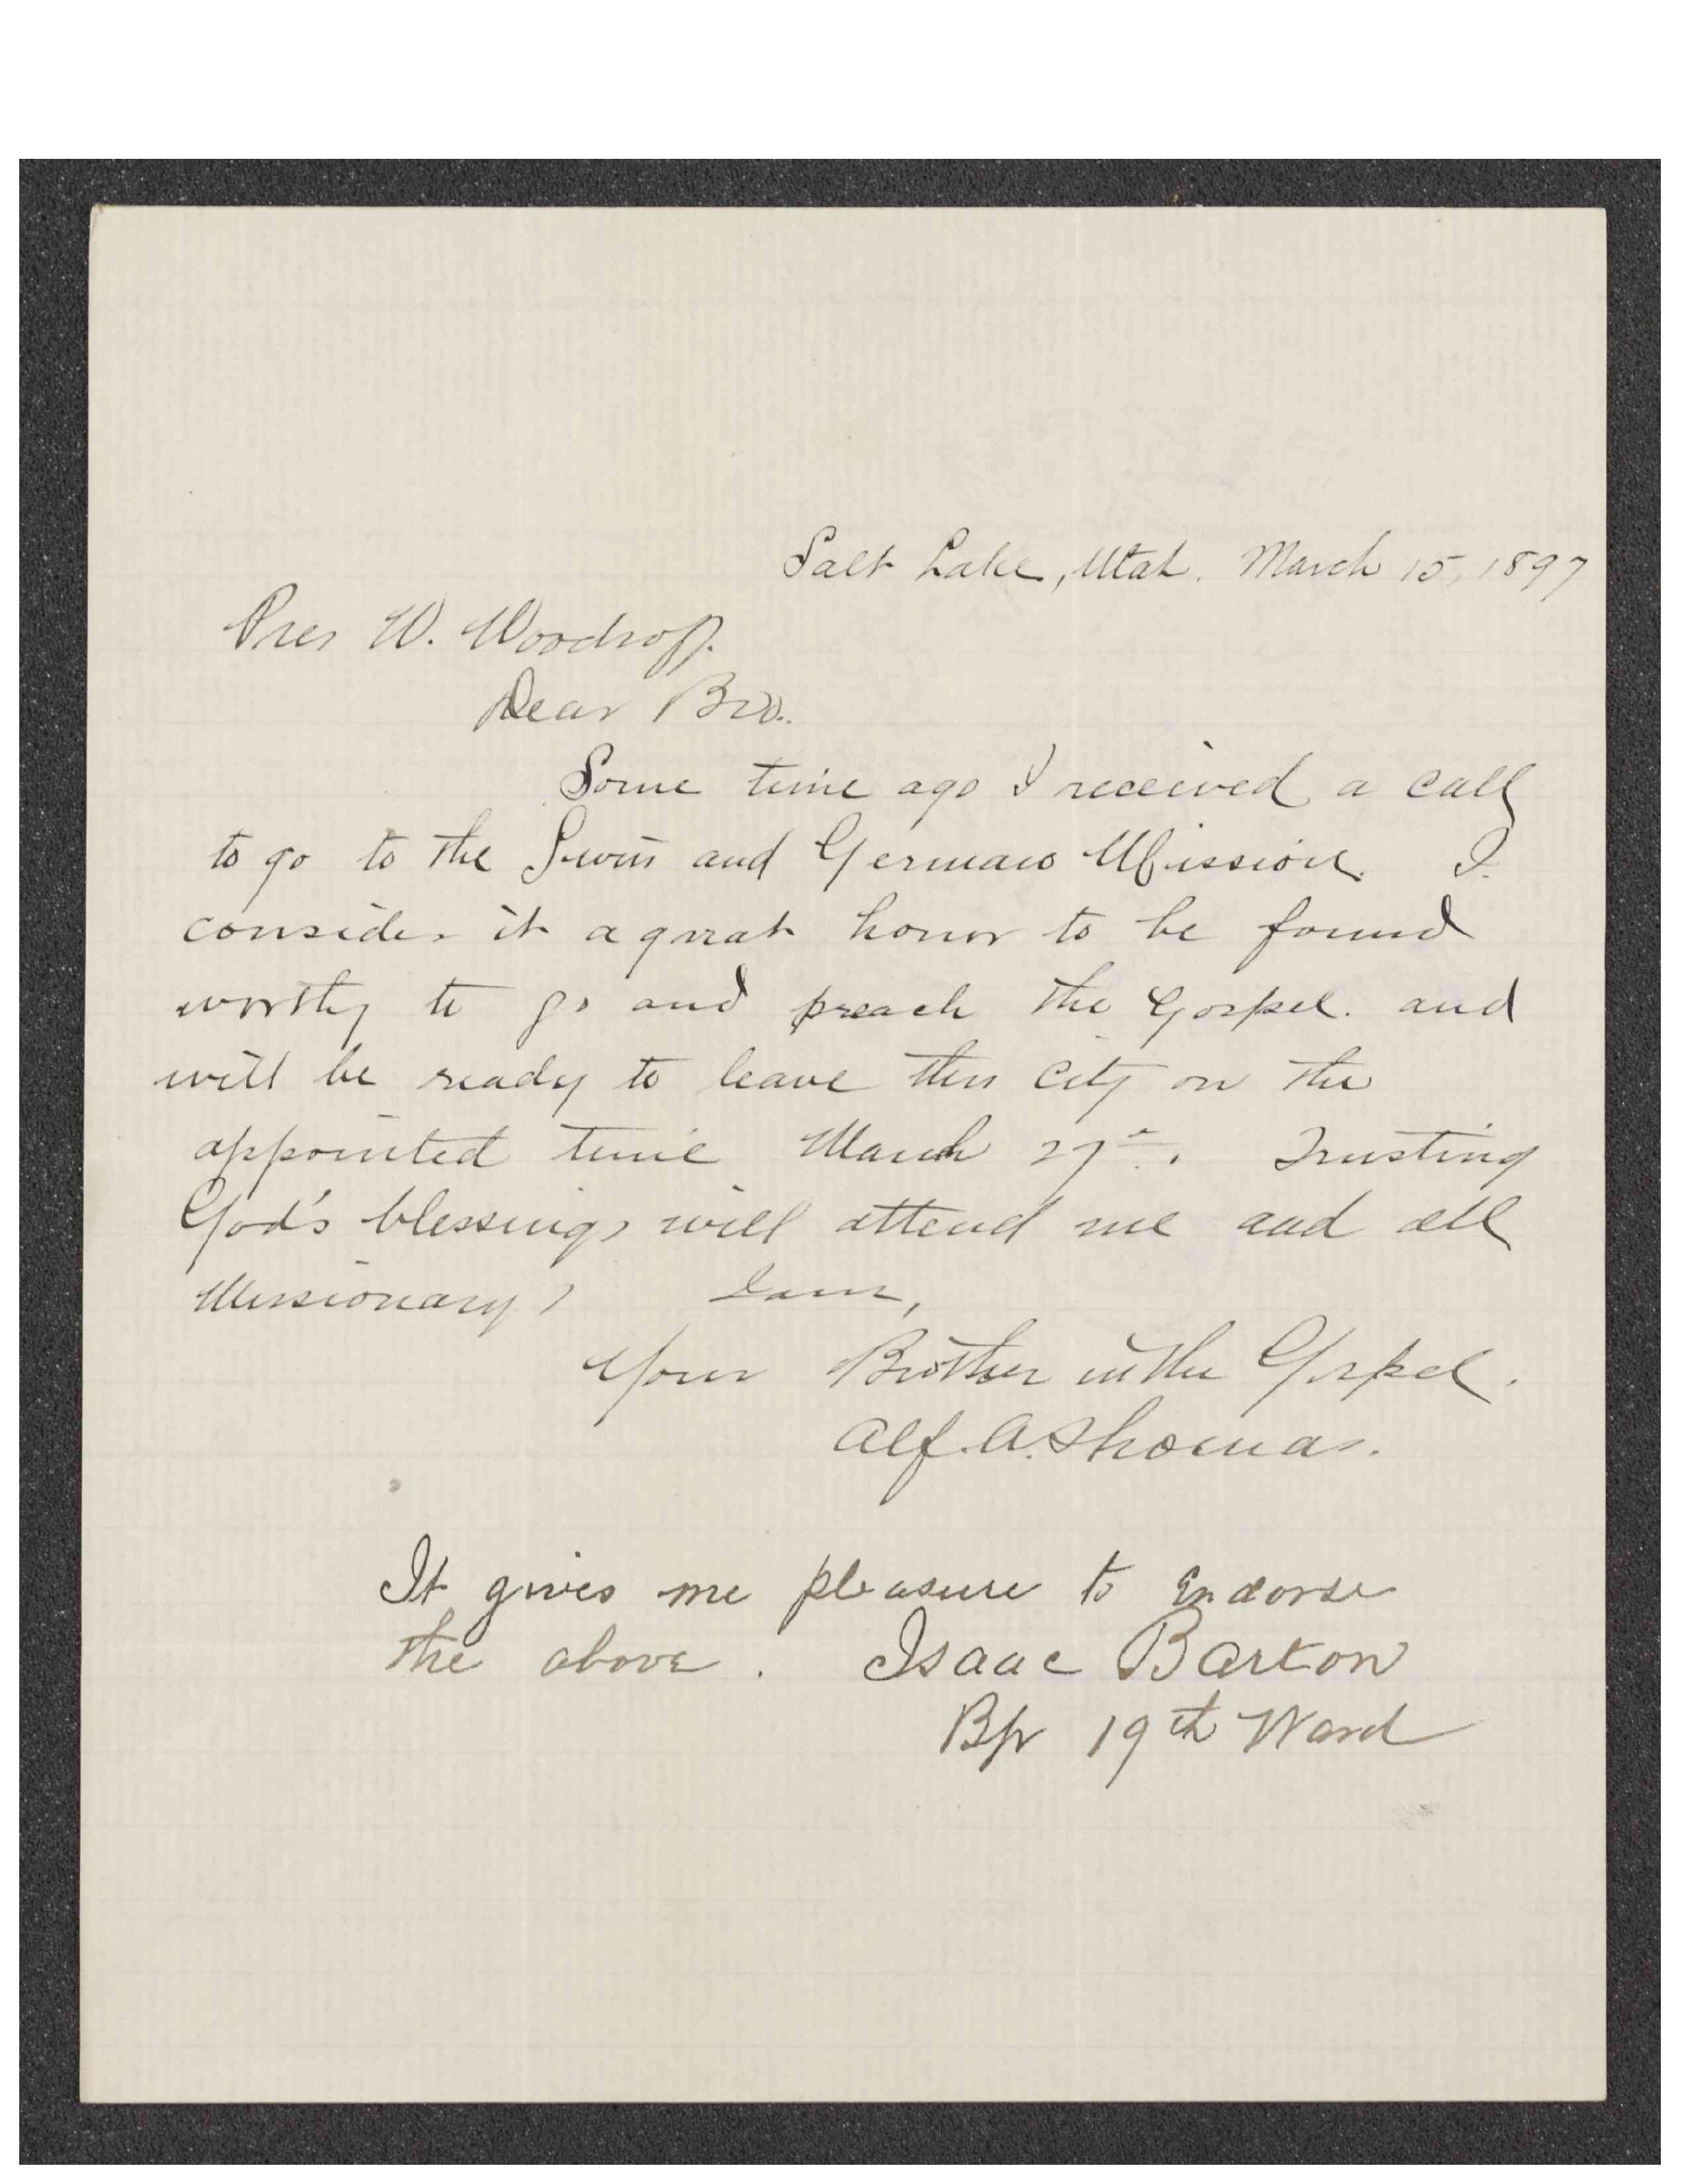 Salt Lake, Utah. March 15, 1897
Pres W. Woodruff.
Dear Bro.
Some time ago I received a call
to go to the Swiss and German Mission. I
consider it a great honor to be found
worthy to go and preach the Gospel. and
will be ready to leave this City on the
appointed time March 27th. Trusting
God's blessings will attend me and all
Missionarys I am,
Your Brother in the Gospel.
Alf. A. Thomas.
It gives me pleasure to Endorse
the above. Isaac Barton
Bp 19th Ward